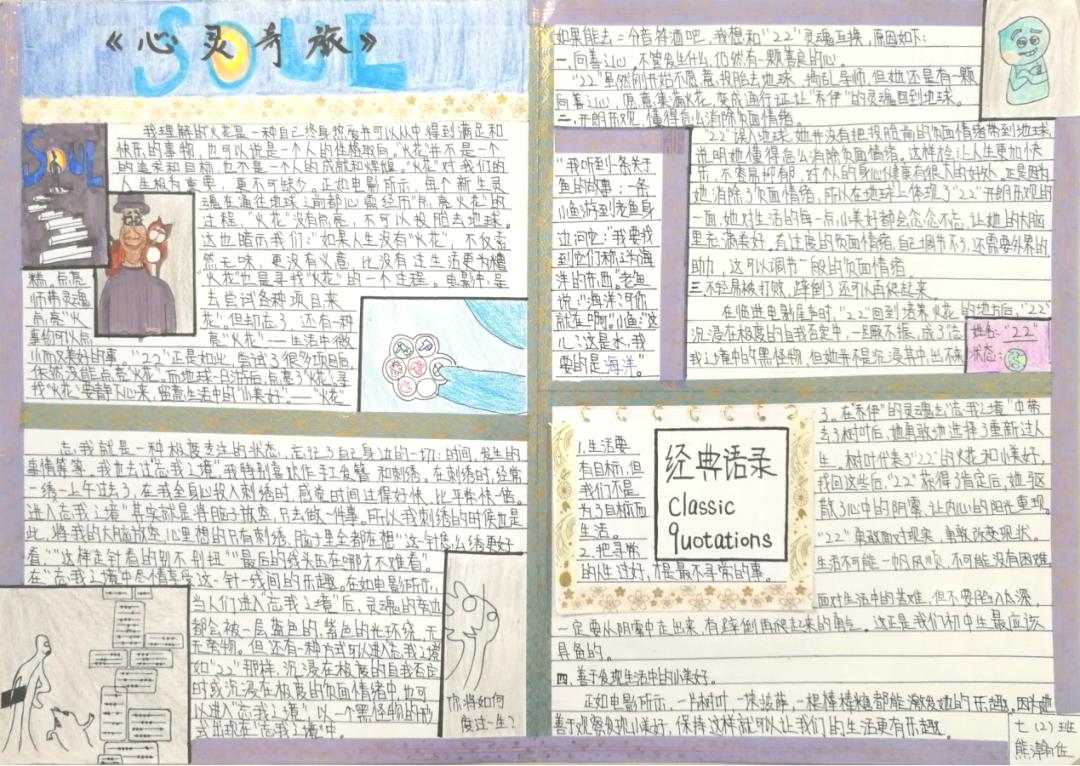 《心灵奇旅》
SOUL
SOUL
我理解的火花是一种自己终身热爱并可以从中得到满足和
快乐的事物，也可以说是一个人的性格取向。"火花"并不是一个
的追求和目标，也不是一个人的成就和辉煌。"火花"对我们的
人生极为重要，更不可缺少。正如电影所示，每个新生灵
魂在通往地球之前都必需经历"点亮火花"的
过程，"火花"没有点亮，不可以投胎去地球。
这也暗示我们："如果人生没有"火花"，不仅索
然无味，更没有义意，比没有过生活更为糟
糕。点亮"火花"也是寻找"火花"的一个过程。电影中导
师带灵魂去尝试各种项目来
点亮"火花"。但却忘了还有一种
事物可以点亮"火花"——生活中微
小而又美好的事，"22"正是如此，尝试了很多项目后，
依然没能点亮"火花"。而地球一日游后，点亮了"火花"。寻
找"火花"要静下心来，留意生活中的"小美好"。——"火花"
忘我就是一种极度专注的状态，忘记了自己身边的一切：时间，发生的
事情等等。我也去过"忘我之境"我特别喜欢作手工发簪和刺绣。在刺绣时，经常
一绣一上午过去了，在我全身心投入刺绣时，感觉时间过得好快，比平常快一倍。
进入"忘我之境"其实就是将脑子放空，只去做一件事。所以我刺绣的时候也是
此，将我的大脑放空，心里想的只有刺绣，脑子里全都在想"这一针怎么绣更好
看""这样走针看的别不别扭""最后的线头压在哪才不难看"。
在"忘我之境"中尽情享受这一针一线间的乐趣。在如电影所示，
当人们进入"忘我之境"后，灵魂的旁边
都会被一层蓝色的，紫色的光环绕，无
杂物。但还有一种方式可以进入忘我之境
如"22"那样，沉浸在极度的自我否定
时或沉浸在极度的负面情绪中，也可
以进入"忘我之境"，以一个黑怪物的形
式出现在"忘我之境"中。
你将如何
度过一生？
如果能去二分音符酒吧，我想和"22"灵魂互换，原因如下：
一.向善之心，不管发生什么，仍然有一颗善良的心。
"22"虽然刚开始不愿意投胎去地球，捣乱导师，但她还是有一颗
向善之心，愿意集满火花，变成通行证让"乔伊"的灵魂回到地球。
二.开朗乐观，懂得怎么消除负面情绪。
"22"误入地球，她并没有把投胎前的负面情绪带到地球，
说明她懂得怎么消除负面情绪。这样会让人生更加快
乐，不容易抑郁，对个人的身心健康有很大的好处。正是因为
她消除了负面情绪，所以在地球上体现了"22"开朗乐观的
一面，她对生活的每一点小美好都会念念不忘，让她的大脑
里充满美好，有过度的负面情绪，自己调节不了，还需要外界的
助力，这可以调节一般的负面情绪。
三.不轻易被打败，摔倒了还可以再爬起来。
在临进电影尾声时，"22"回到培养火花的地方后，"22"
沉浸在极度的自我否定中，一蹶不振，成了"忘
我之境中的黑怪物，但她并不是沉浸其中，出不来
"我听到一条关于
鱼的故事：一条
小鱼游到老鱼身
边问它："我要找
到它们称之为海
洋的东西。"老鱼
说："海洋？可你
就在中啊。"小鱼："这
儿？这是水，我
要的是海洋。"
姓名："22"
状态：
1.生活要
有目标，但
我们不是
为了目标而
生活。
2.把寻常
的人生过好，才是最不寻常的事。
经典语录
Classic
quotations
了。在"乔伊"的灵魂去"忘我之境"中带
去了树叶后，她勇敢地选择了重新过人
生，树叶代表了"22"的火花和小美好，
找回这些后，"22"获得了肯定后，她驱
散了心中的阴霾，让内心的阳光重现。
"22"勇敢面对现实，勇敢改变现状。
生活不可能一帆风顺，不可能没有困难
面对生活中的苦难，但不要陷入太深，
一定要从阴霾中走出来，有摔倒再爬起来的勇气。这正是我们初中生最应该
具备的。
四.善于发现生活中的小美好。
正如电影所示，一片树叶，一块披萨，一根棒棒糖都能激发她的乐趣，因为她
善于观察发现小美好，保持这样就可以让我们的生活更有乐趣。
七（2）班
熊瀚佐